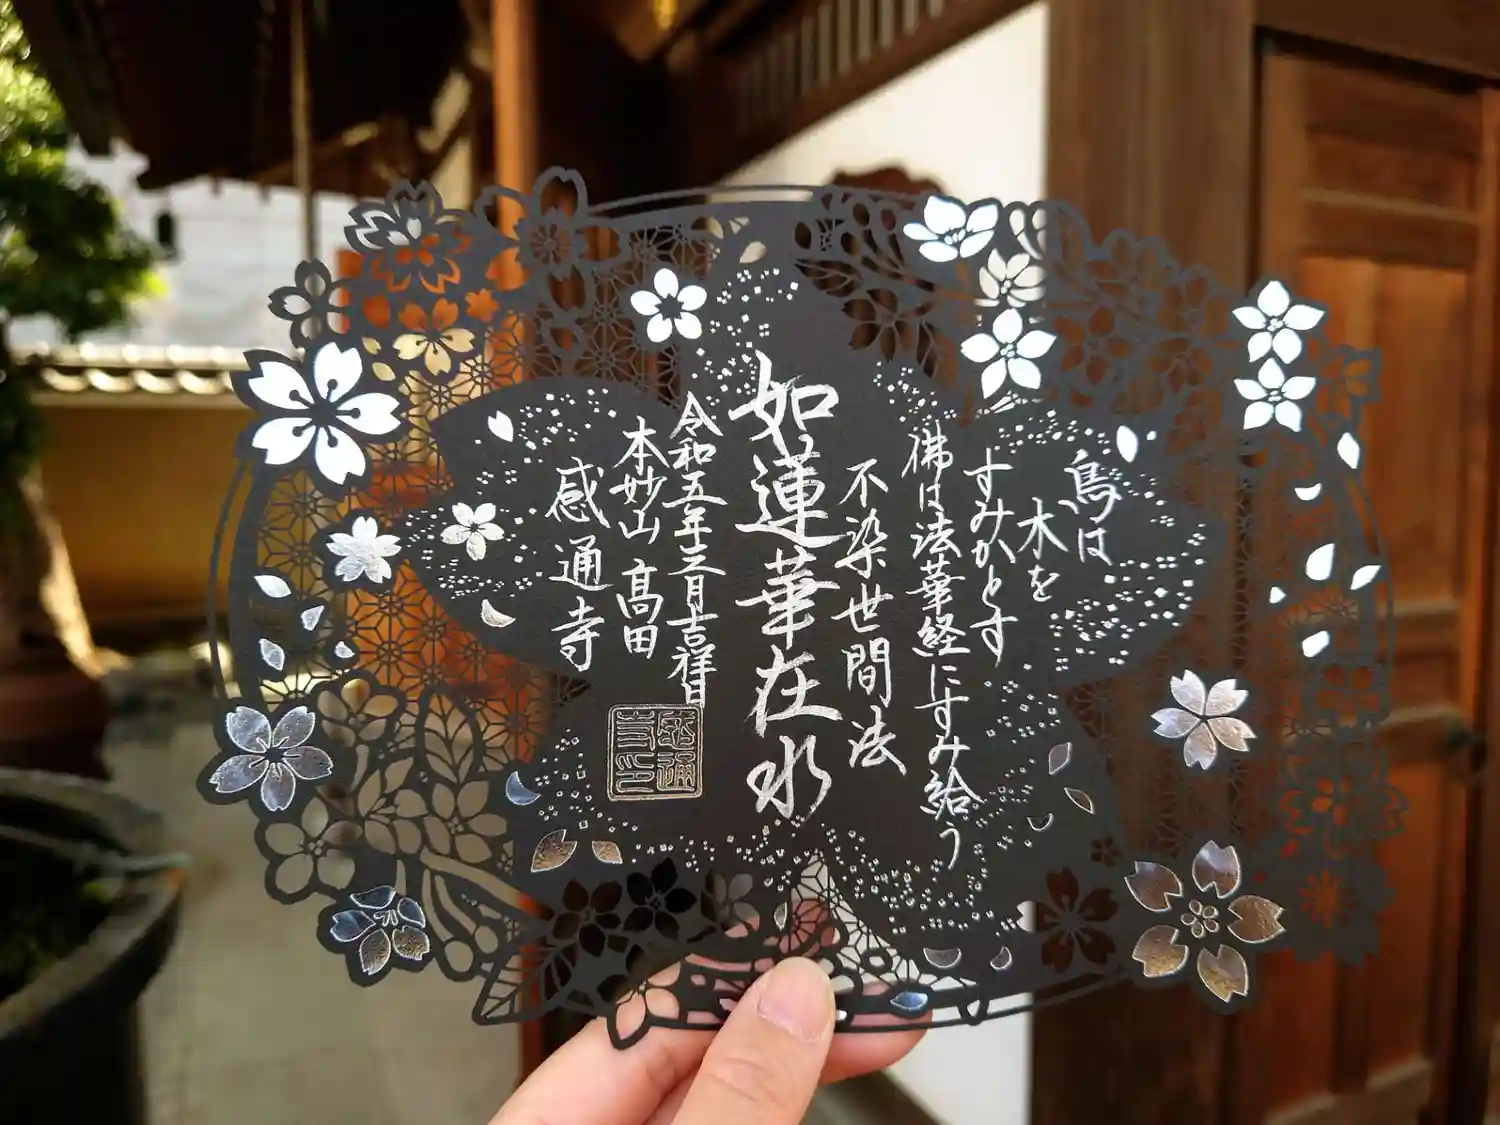 鳥は
木を
すみかとす
佛は法華経にすみ給う
不染世間法
如蓮華在水
令和五年三月吉祥日
本妙山 髙田
感通寺
感通
寺印